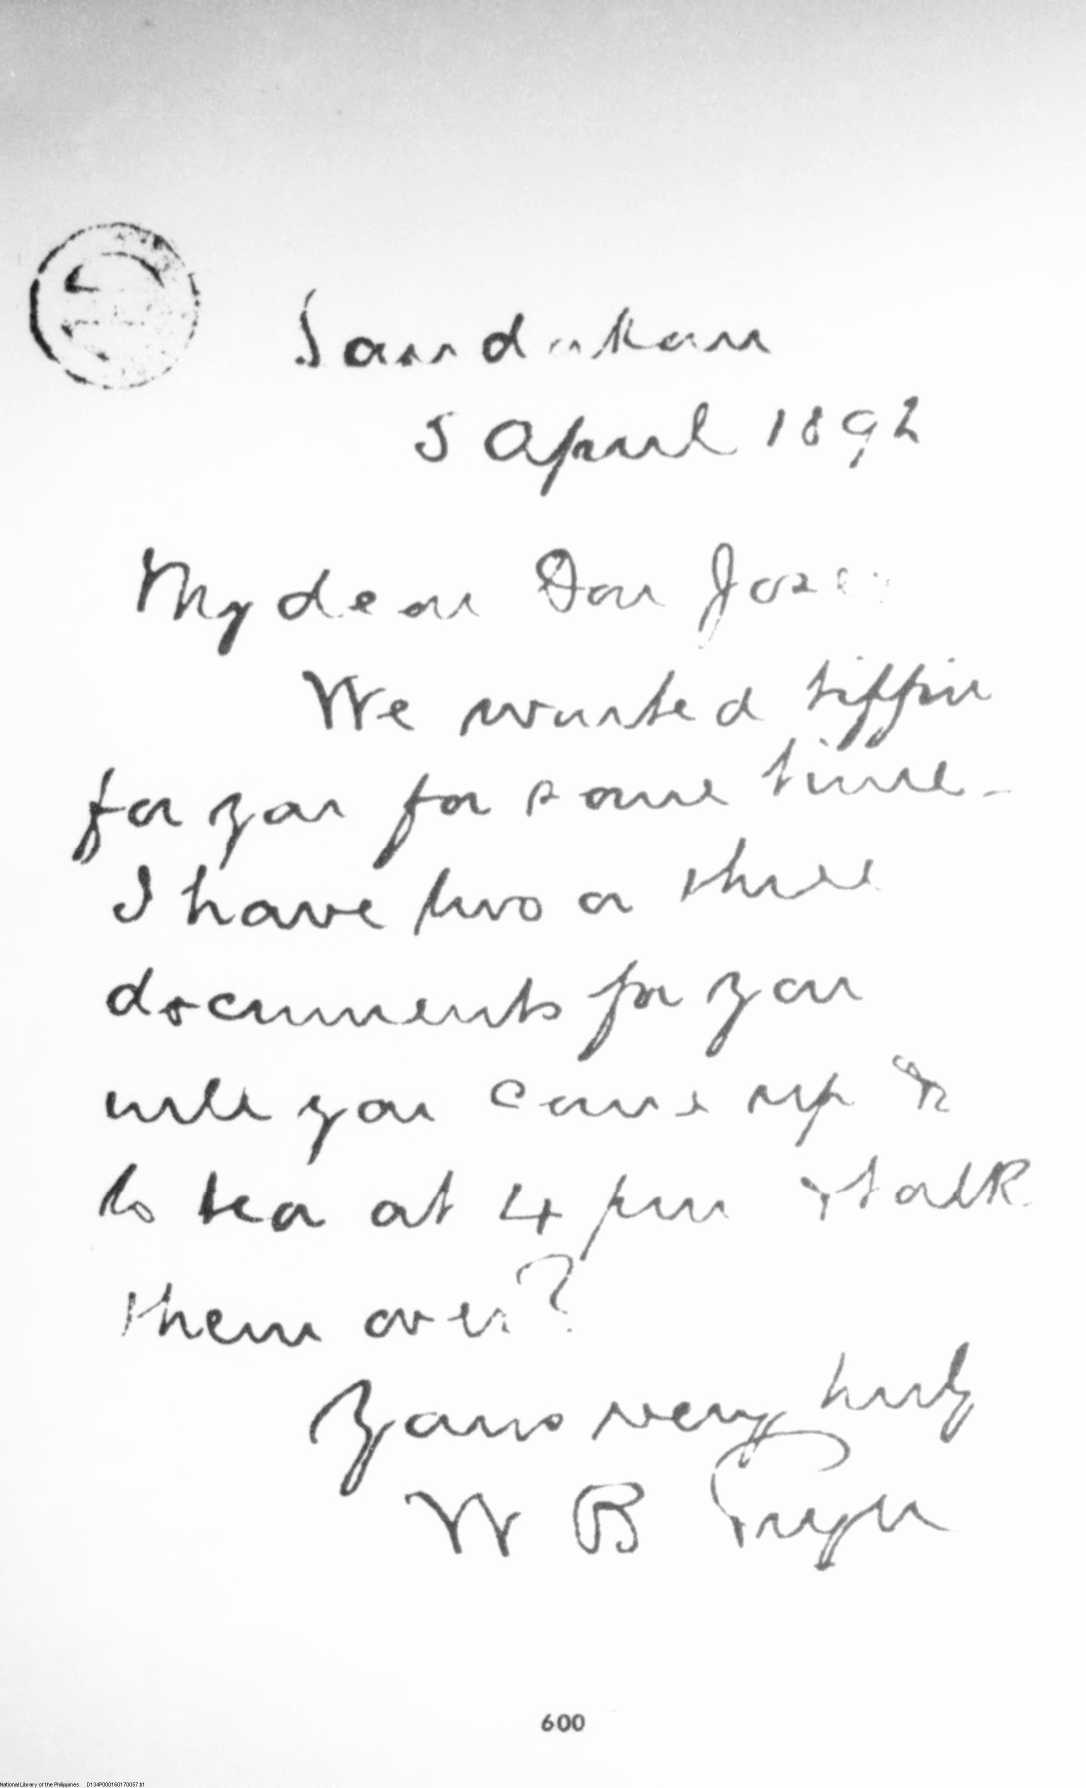 Sandakan
5 April 1892
My dear Don Jose
We wanted tiffin
for you for some time -
I have two or three
documents for you
will you come up &
to tea at 4 pm & talk
them over?
Yours very truly
W B Pryer
600
National Library of the Philippines D134P000160170057.tif